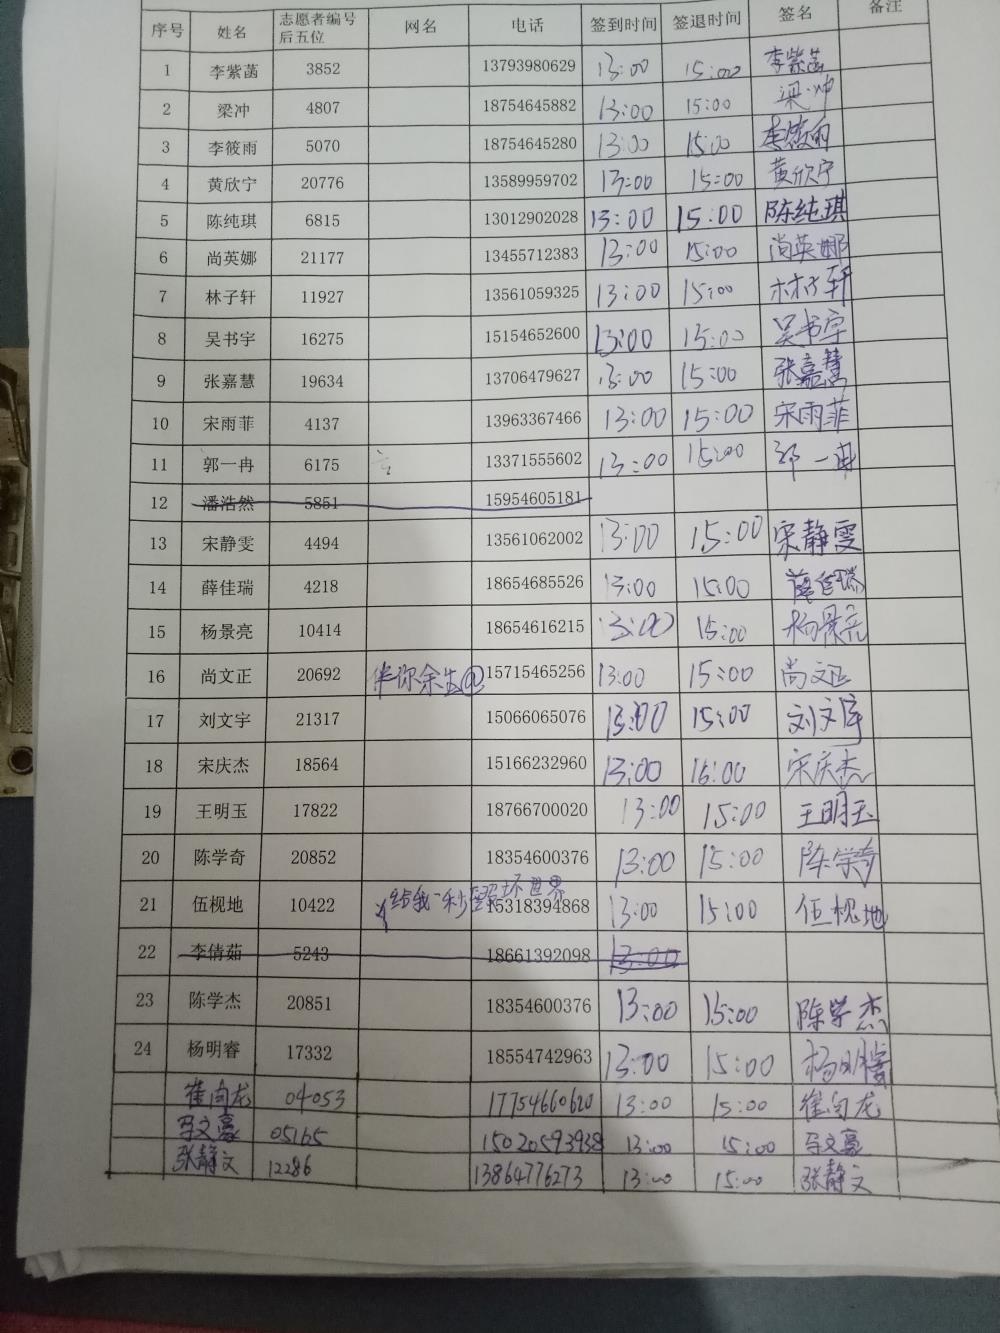 序号 姓名 志愿者编号后五位 网名 电话 签到时间 签退时间 签名 备注
1 李紫菡 3852 13793980629 13:00 15:00 李紫菡
2 梁冲 4807 18754645882 13:00 15:00 梁冲
3 李筱雨 5070 18754645280 13:00 15:00 李筱雨
4 黄欣宁 20776 13589959702 13:00 15:00 黄欣宁
5 陈纯琪 6815 13012902028 13:00 15:00 陈纯琪
6 尚英娜 21177 13455712383 13:00 15:00 尚英娜
7 林子轩 11927 13561059325 13:00 15:00 林子轩
8 吴书宇 16275 15154652600 13:00 15:00 吴书宇
9 张嘉慧 19634 13706479627 13:00 15:00 张嘉慧
10 宋雨菲 4137 13963367466 13:00 15:00 宋雨菲
11 郭一冉 6175 13371555602 13:00 15:00 郭一冉
12 潘浩然 5851 15954605181
13 宋静雯 4494 13561062002 13:00 15:00 宋静雯
14 薛佳瑞 4218 18654685526 13:00 15:00 薛佳瑞
15 杨景亮 10414 18654616215 13:00 15:00 杨景亮
16 尚文正 20692 伴你余生@ 15715465256 13:00 15:00 尚文正
17 刘文宇 21317 15066065076 13:00 15:00 刘文宇
18 宋庆杰 18564 15166232960 13:00 16:00 宋庆杰
19 王明玉 17822 18766700020 13:00 15:00 王明玉
20 陈学奇 20852 18354600376 13:00 15:00 陈学奇
21 伍枧地 10422 给我一秒 坏世界 15318394868 13:00 15:00 伍枧地
22 李倩茹 5243 18661392098 13:00
23 陈学杰 20851 18354600376 13:00 15:00 陈学杰
24 杨明睿 17332 18554742963 13:00 15:00 杨明睿
崔向龙 04053 17754660620 13:00 15:00 崔向龙
马文豪 05165 15020593938 13:00 15:00 马文豪
张静文 12286 13864776273 13:00 15:00 张静文